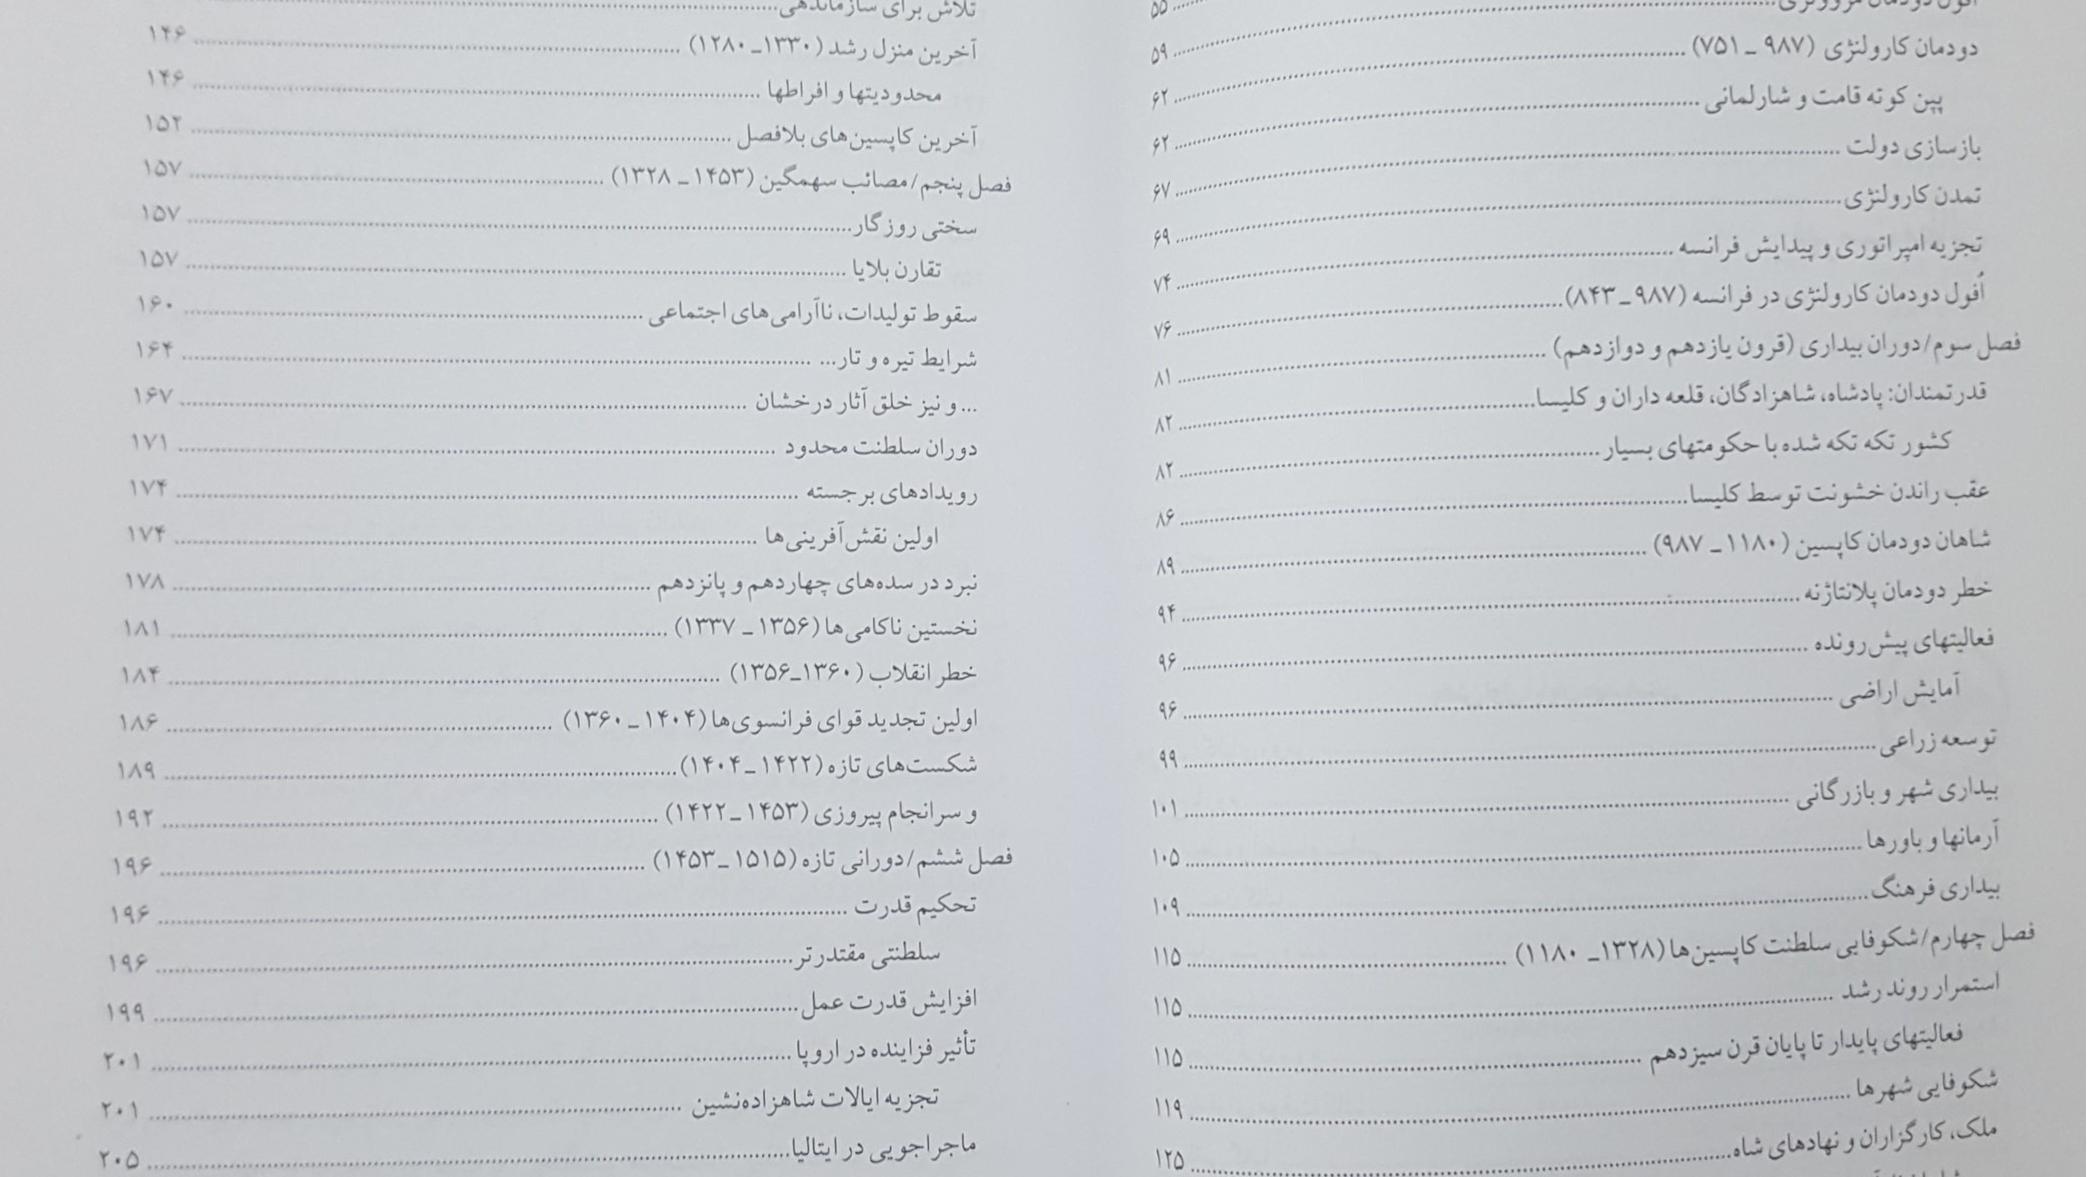 افول دودمان مروونژی ........ ۵۵
دودمان کارولنژی (۹۸۷ ـ ۷۵۱) ........ ۵۹
پپن کوته قامت و شارلمانی ........ ۶۲
بازسازی دولت ........ ۶۲
تمدن کارولنژی ........ ۶۷
تجزیه امپراتوری و پیدایش فرانسه ........ ۶۹
اُفول دودمان کارولنژی در فرانسه (۹۸۷ ـ ۸۴۳) ........ ۷۴
۷۶
فصل سوم/دوران بیداری (قرون یازدهم و دوازدهم) ........ ۸۱
قدرتمندان: پادشاه، شاهزادگان، قلعه داران و کلیسا ........ ۸۲
کشور تکه تکه شده با حکومتهای بسیار ........ ۸۲
عقب راندن خشونت توسط کلیسا ........ ۸۶
شاهان دودمان کاپسین (۱۱۸۰ ـ ۹۸۷) ........ ۸۹
خطر دودمان پلانتاژنه ........ ۹۴
فعالیتهای پیش‌رونده ........ ۹۶
آمایش اراضی ........ ۹۶
توسعه زراعی ........ ۹۹
بیداری شهر و بازرگانی ........ ۱۰۱
آرمانها و باورها ........ ۱۰۵
بیداری فرهنگ ........ ۱۰۹
فصل چهارم/شکوفایی سلطنت کاپسین‌ها (۱۳۲۸ ـ ۱۱۸۰) ........ ۱۱۵
استمرار روند رشد ........ ۱۱۵
فعالیتهای پایدار تا پایان قرن سیزدهم ........ ۱۱۵
شکوفایی شهرها ........ ۱۱۹
ملک، کارگزاران و نهادهای شاه ........ ۱۲۵
تلاش برای سازماندهی ........
آخرین منزل رشد (۱۳۳۰ ـ ۱۲۸۰) ........ ۱۴۶
محدودیتها و افراطها ........ ۱۴۶
آخرین کاپسین‌های بلافصل ........ ۱۵۲
فصل پنجم/مصائب سهمگین (۱۴۵۳ ـ ۱۳۲۸) ........ ۱۵۷
سختی روزگار ........ ۱۵۷
تقارن بلایا ........ ۱۵۷
سقوط تولیدات، ناآرامی‌های اجتماعی ........ ۱۶۰
شرایط تیره و تار... ........ ۱۶۴
... و نیز خلق آثار درخشان ........ ۱۶۷
دوران سلطنت محدود ........ ۱۷۱
رویدادهای برجسته ........ ۱۷۴
اولین نقش‌آفرینی‌ها ........ ۱۷۴
نبرد در سده‌های چهاردهم و پانزدهم ........ ۱۷۸
نخستین ناکامی‌ها (۱۳۵۶ ـ ۱۳۳۷) ........ ۱۸۱
خطر انقلاب (۱۳۶۰ ـ ۱۳۵۶) ........ ۱۸۴
اولین تجدید قوای فرانسوی‌ها (۱۴۰۴ ـ ۱۳۶۰) ........ ۱۸۶
شکست‌های تازه (۱۴۲۲ ـ ۱۴۰۴) ........ ۱۸۹
و سرانجام پیروزی (۱۴۵۳ ـ ۱۴۲۲) ........ ۱۹۲
فصل ششم/دورانی تازه (۱۵۱۵ ـ ۱۴۵۳) ........ ۱۹۶
تحکیم قدرت ........ ۱۹۶
سلطنتی مقتدرتر ........ ۱۹۶
افزایش قدرت عمل ........ ۱۹۹
تأثیر فزاینده در اروپا ........ ۲۰۱
تجزیه ایالات شاهزاده‌نشین ........ ۲۰۱
ماجراجویی در ایتالیا ........ ۲۰۵